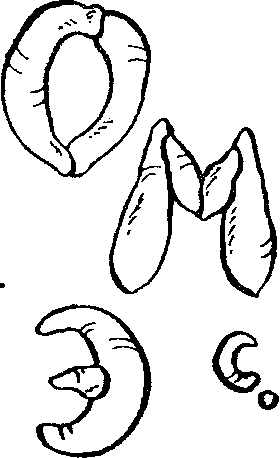 О
М
Э с.